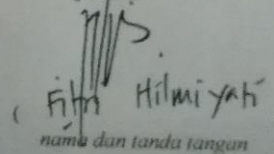 ( Fitri Hilmiyati
nama dan tanda tangan